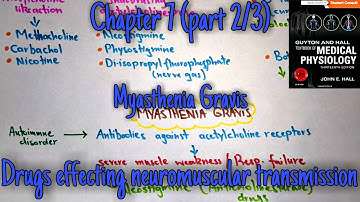 Chapter 7 (part 2/3)
like action
• Methacholine
• Carbachol
• Nicotine
• Neostigmine
• Physostigmine
• Di-isopropyl fluorophosphate
(nerve gas)
Student Consult
GUYTON AND HALL
TEXTBOOK OF
MEDICAL
PHYSIOLOGY
THIRTEENTH EDITION
JOHN E. HALL
Myasthenia Gravis
MYASTHENIA GRAVIS
Autoimmune
disorder
Antibodies against acetylcholine receptors
severe muscle weakness / Resp. failure
Drugs effecting neuromuscular transmission
Neostigmine (Anticholinesterase)
drugs